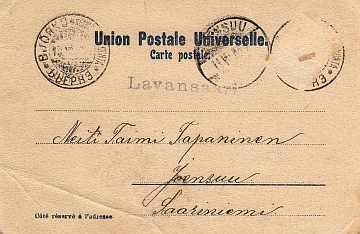 Union Postale Universelle.
Carte postale.
BJÖRKÖ
Lavansaari
Neiti Taimi Tapaninen
Joensuu
Saariniemi
Côté réservé à l'adresse